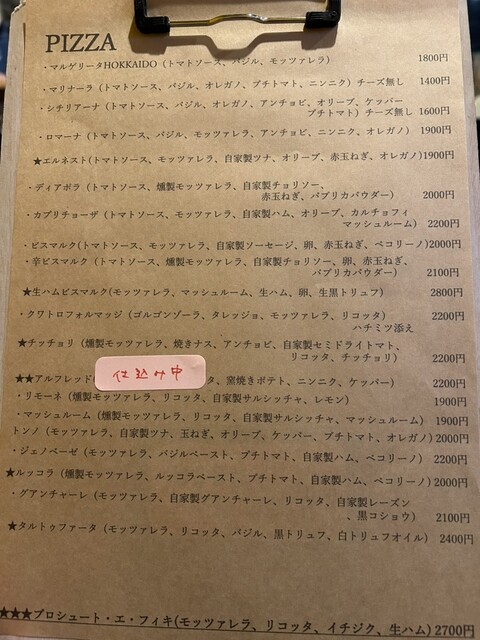 PIZZA
・マルゲリータHOKKAIDO（トマトソース、バジル、モッツァレラ） 1800円
・マリナーラ（トマトソース、バジル、オレガノ、プチトマト、ニンニク）チーズ無し 1400円
・シチリアーナ（トマトソース、バジル、オレガノ、アンチョビ、オリーブ、ケッパー
プチトマト）チーズ無し 1600円
・ロマーナ（トマトソース、バジル、モッツァレラ、アンチョビ、ニンニク、オレガノ） 1900円
★エルネスト(トマトソース、モッツァレラ、自家製ツナ、オリーブ、赤玉ねぎ、オレガノ)1900円
・ディアボラ（トマトソース、燻製モッツァレラ、自家製チョリソー、
赤玉ねぎ、パプリカパウダー） 2000円
・カプリチョーザ（トマトソース、モッツァレラ、自家製ハム、オリーブ、カルチョフィ
マッシュルーム） 2200円
・ビスマルク(トマトソース、モッツァレラ、自家製ソーセージ、卵、赤玉ねぎ、ペコリーノ)2000円
・辛ビスマルク（トマトソース、燻製モッツァレラ、自家製チョリソー、卵、赤玉ねぎ、
パプリカパウダー） 2100円
★生ハムビスマルク(モッツァレラ、マッシュルーム、生ハム、卵、生黒トリュフ) 2800円
・クワトロフォルマッジ（ゴルゴンゾーラ、タレッジョ、モッツァレラ、リコッタ） 2200円
ハチミツ添え
★チッチョリ（燻製モッツァレラ、焼きナス、アンチョビ、自家製セミドライトマト、
リコッタ、チッチョリ） 2200円
★★アルフレッド 仕込み中 タ、窯焼きポテト、ニンニク、ケッパー） 2200円
・リモーネ（燻製モッツァレラ、リコッタ、自家製サルシッチャ、レモン） 1900円
・マッシュルーム（燻製モッツァレラ、リコッタ、自家製サルシッチャ、マッシュルーム） 1900円
トンノ（モッツァレラ、自家製ツナ、玉ねぎ、オリーブ、ケッパー、プチトマト、オレガノ）2000円
・ジェノベーゼ（モッツァレラ、バジルペースト、プチトマト、自家製ハム、ペコリーノ） 2200円
★ルッコラ（燻製モッツァレラ、ルッコラペースト、プチトマト、自家製ハム、ペコリーノ）2000円
・グアンチャーレ（モッツァレラ、自家製グアンチャーレ、リコッタ、自家製レーズン
、黒コショウ） 2100円
★タルトゥファータ（モッツァレラ、リコッタ、バジル、黒トリュフ、白トリュフオイル） 2400円
★★★プロシュート・エ・フィキ(モッツァレラ、リコッタ、イチジク、生ハム) 2700円